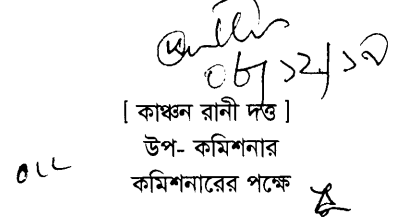 ০৮/১২/১৯
[ কাঞ্চন রানী দত্ত ]
উপ- কমিশনার
কমিশনারের পক্ষে